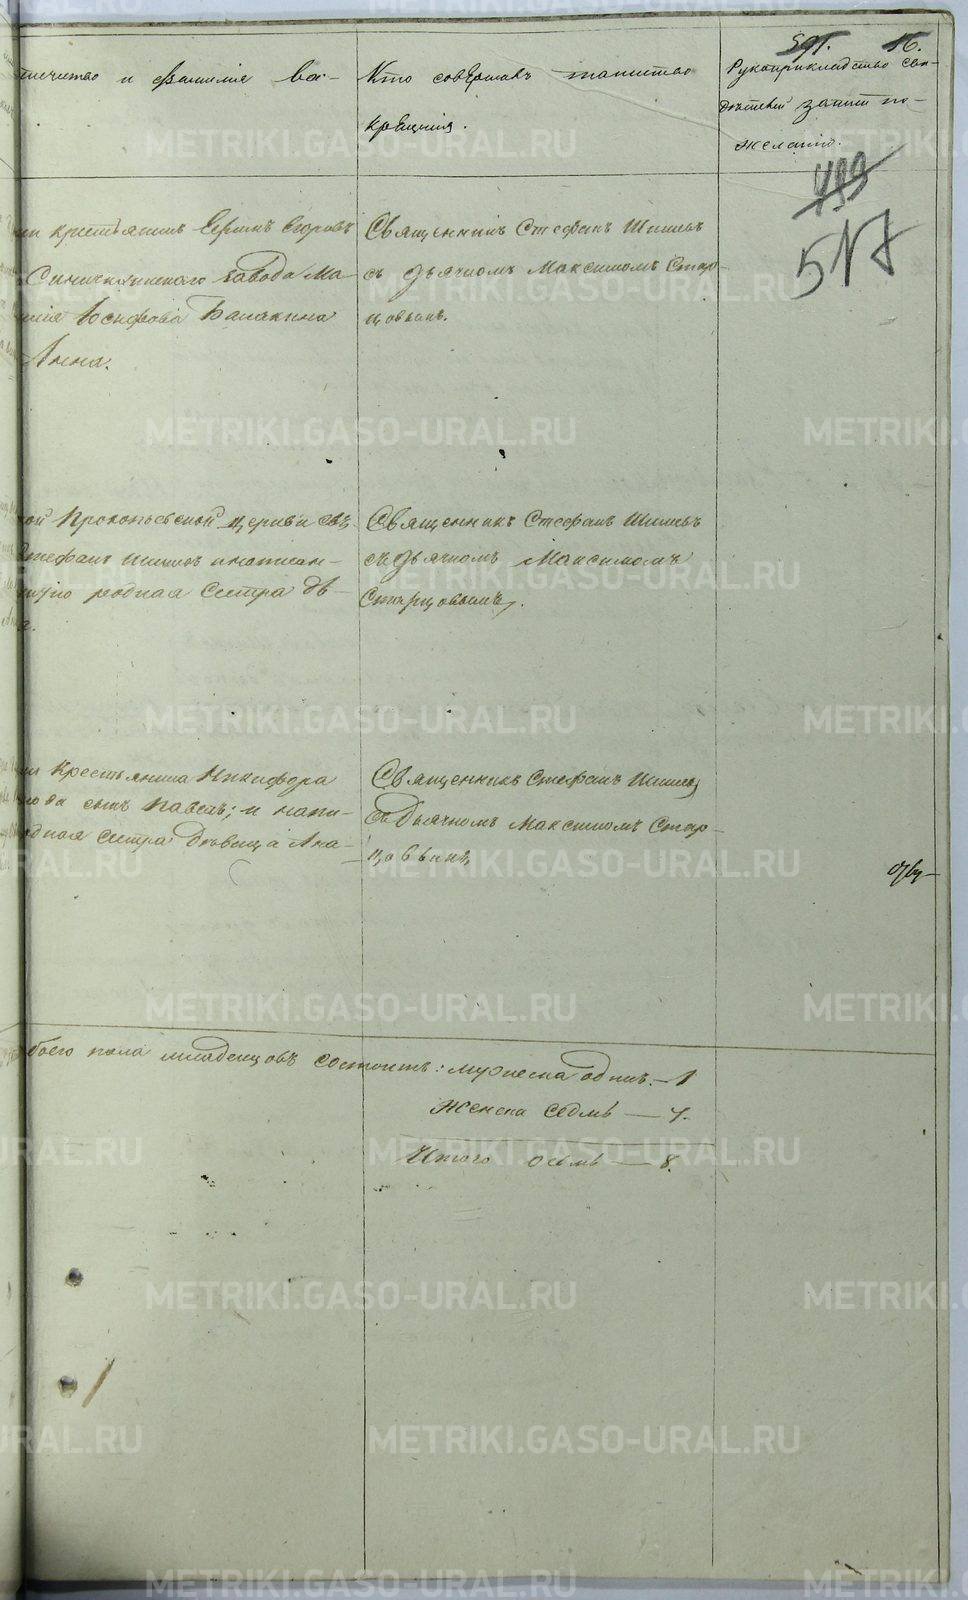 591. 16.
отчество и фамилія вос-
Кто совершалъ таинство
крещенія.
Рукоприкладство сви-
дѣтелей записи по
желанію.
499
517
крестьянинъ Егоровъ
Синячихинскаго завода Ма-
Іосифова Балакина
Анна.
Священникъ Стефанъ Шишевъ
съ дьячкомъ Максимомъ Стар-
цовымъ.
кой Прокопьевской церкви свя
Стефанъ Шишевъ и написан-
родная сестра дѣ-
Священникъ Стефанъ Шишевъ
съ дьячкомъ Максимомъ
Старцовымъ.
Крестьянина Никифора
сынъ Павелъ; и напи-
одная сестра дѣвица Ана-
Священникъ Стефанъ Шишевъ
съ Дьячкомъ Максимомъ Стар-
цовымъ
боего пола младенцовъ состоитъ: мужеска одинъ — 1
Женска седмь — 7.
Итого осьмь — 8.
METRIKI.GASO-URAL.RU